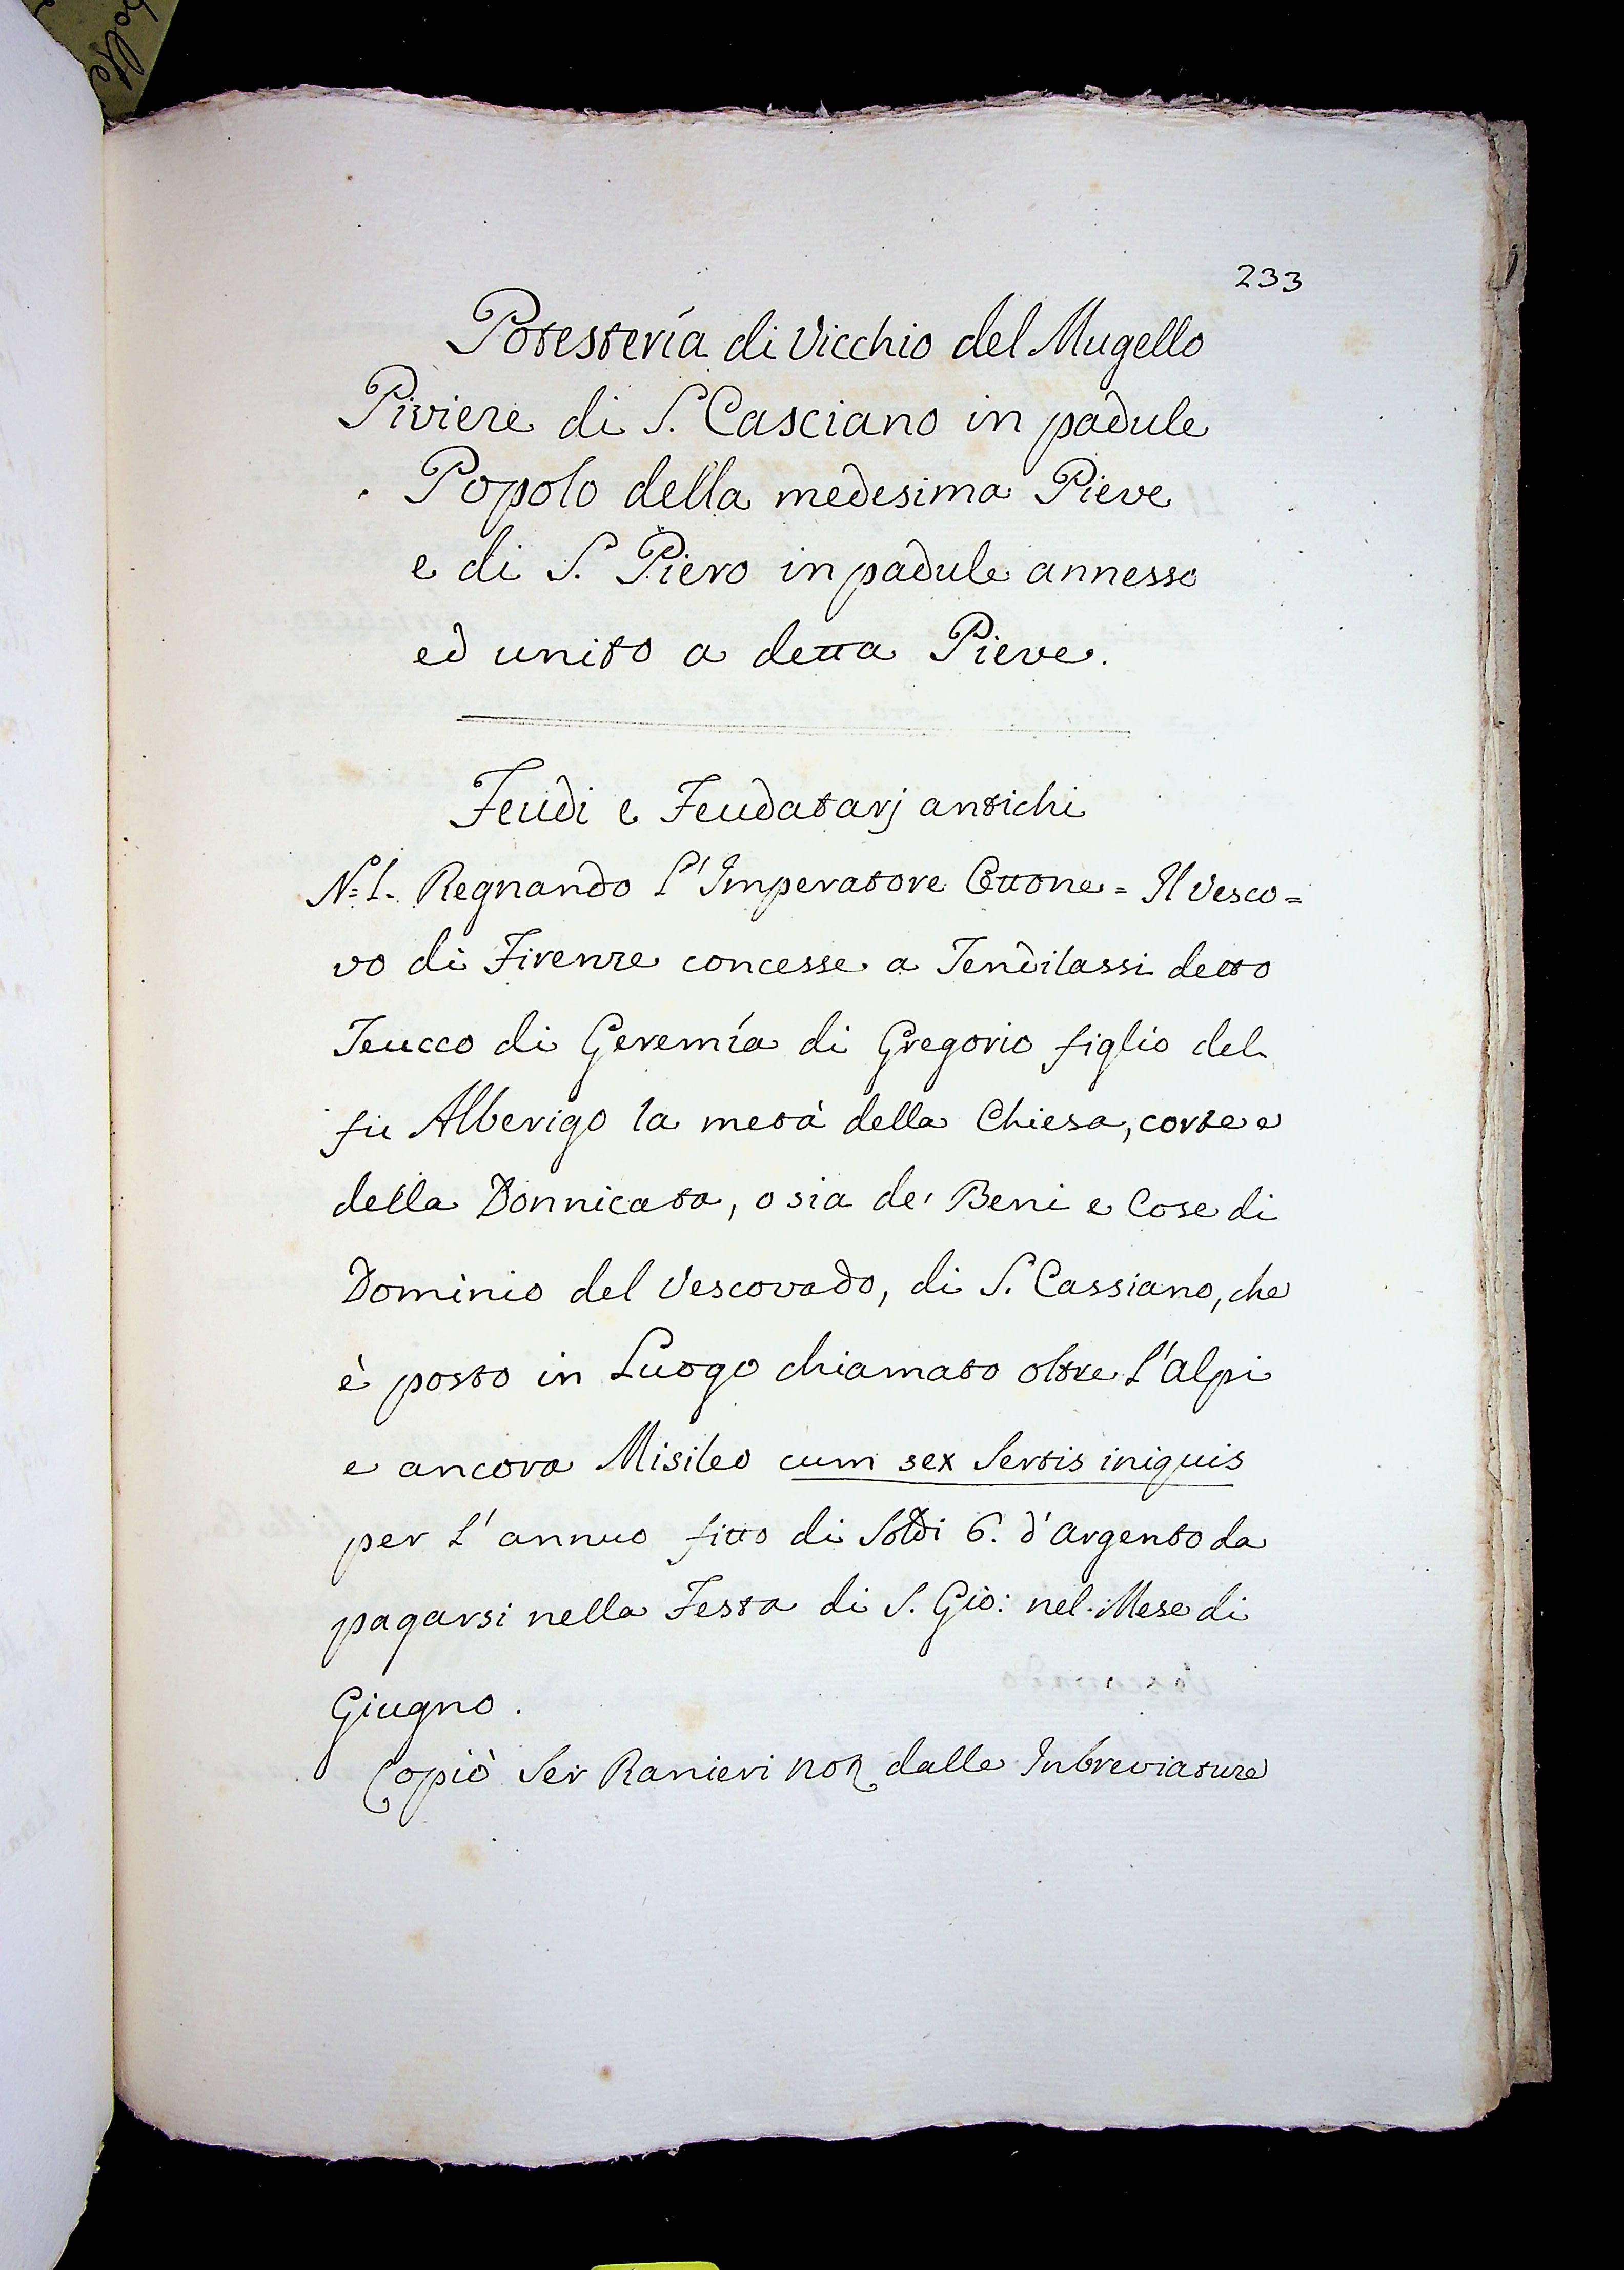 233
Potesterìa di Vicchio del Mugello
Piviere di S. Casciano in padule
Popolo della medesima Pieve
e di S. Piero in padule annesso
ed unito a detta Pieve.
Feudi e Feudatarj antichi
N=1. Regnando l'Imperatore Ottone = Il Vesco=
vo di Firenze concesse a Tendilassi detto
Teucco di Geremía di Gregorio figlio del
fu Alberigo la metà della Chiesa, corte e
della Donnicata, o sia de' Beni e Cose di
Dominio del Vescovado, di S. Cassiano, che
è posto in Luogo chiamato oltre l'alpi
e ancora Misileo cum sex Sertis iniquis
per l'annuo fitto di Soldi 6. d'argento da
pagarsi nella Festa di S. Gio: nel Mese di
Giugno.
Copiò Ser Ranieri Not dalle Inbreviature